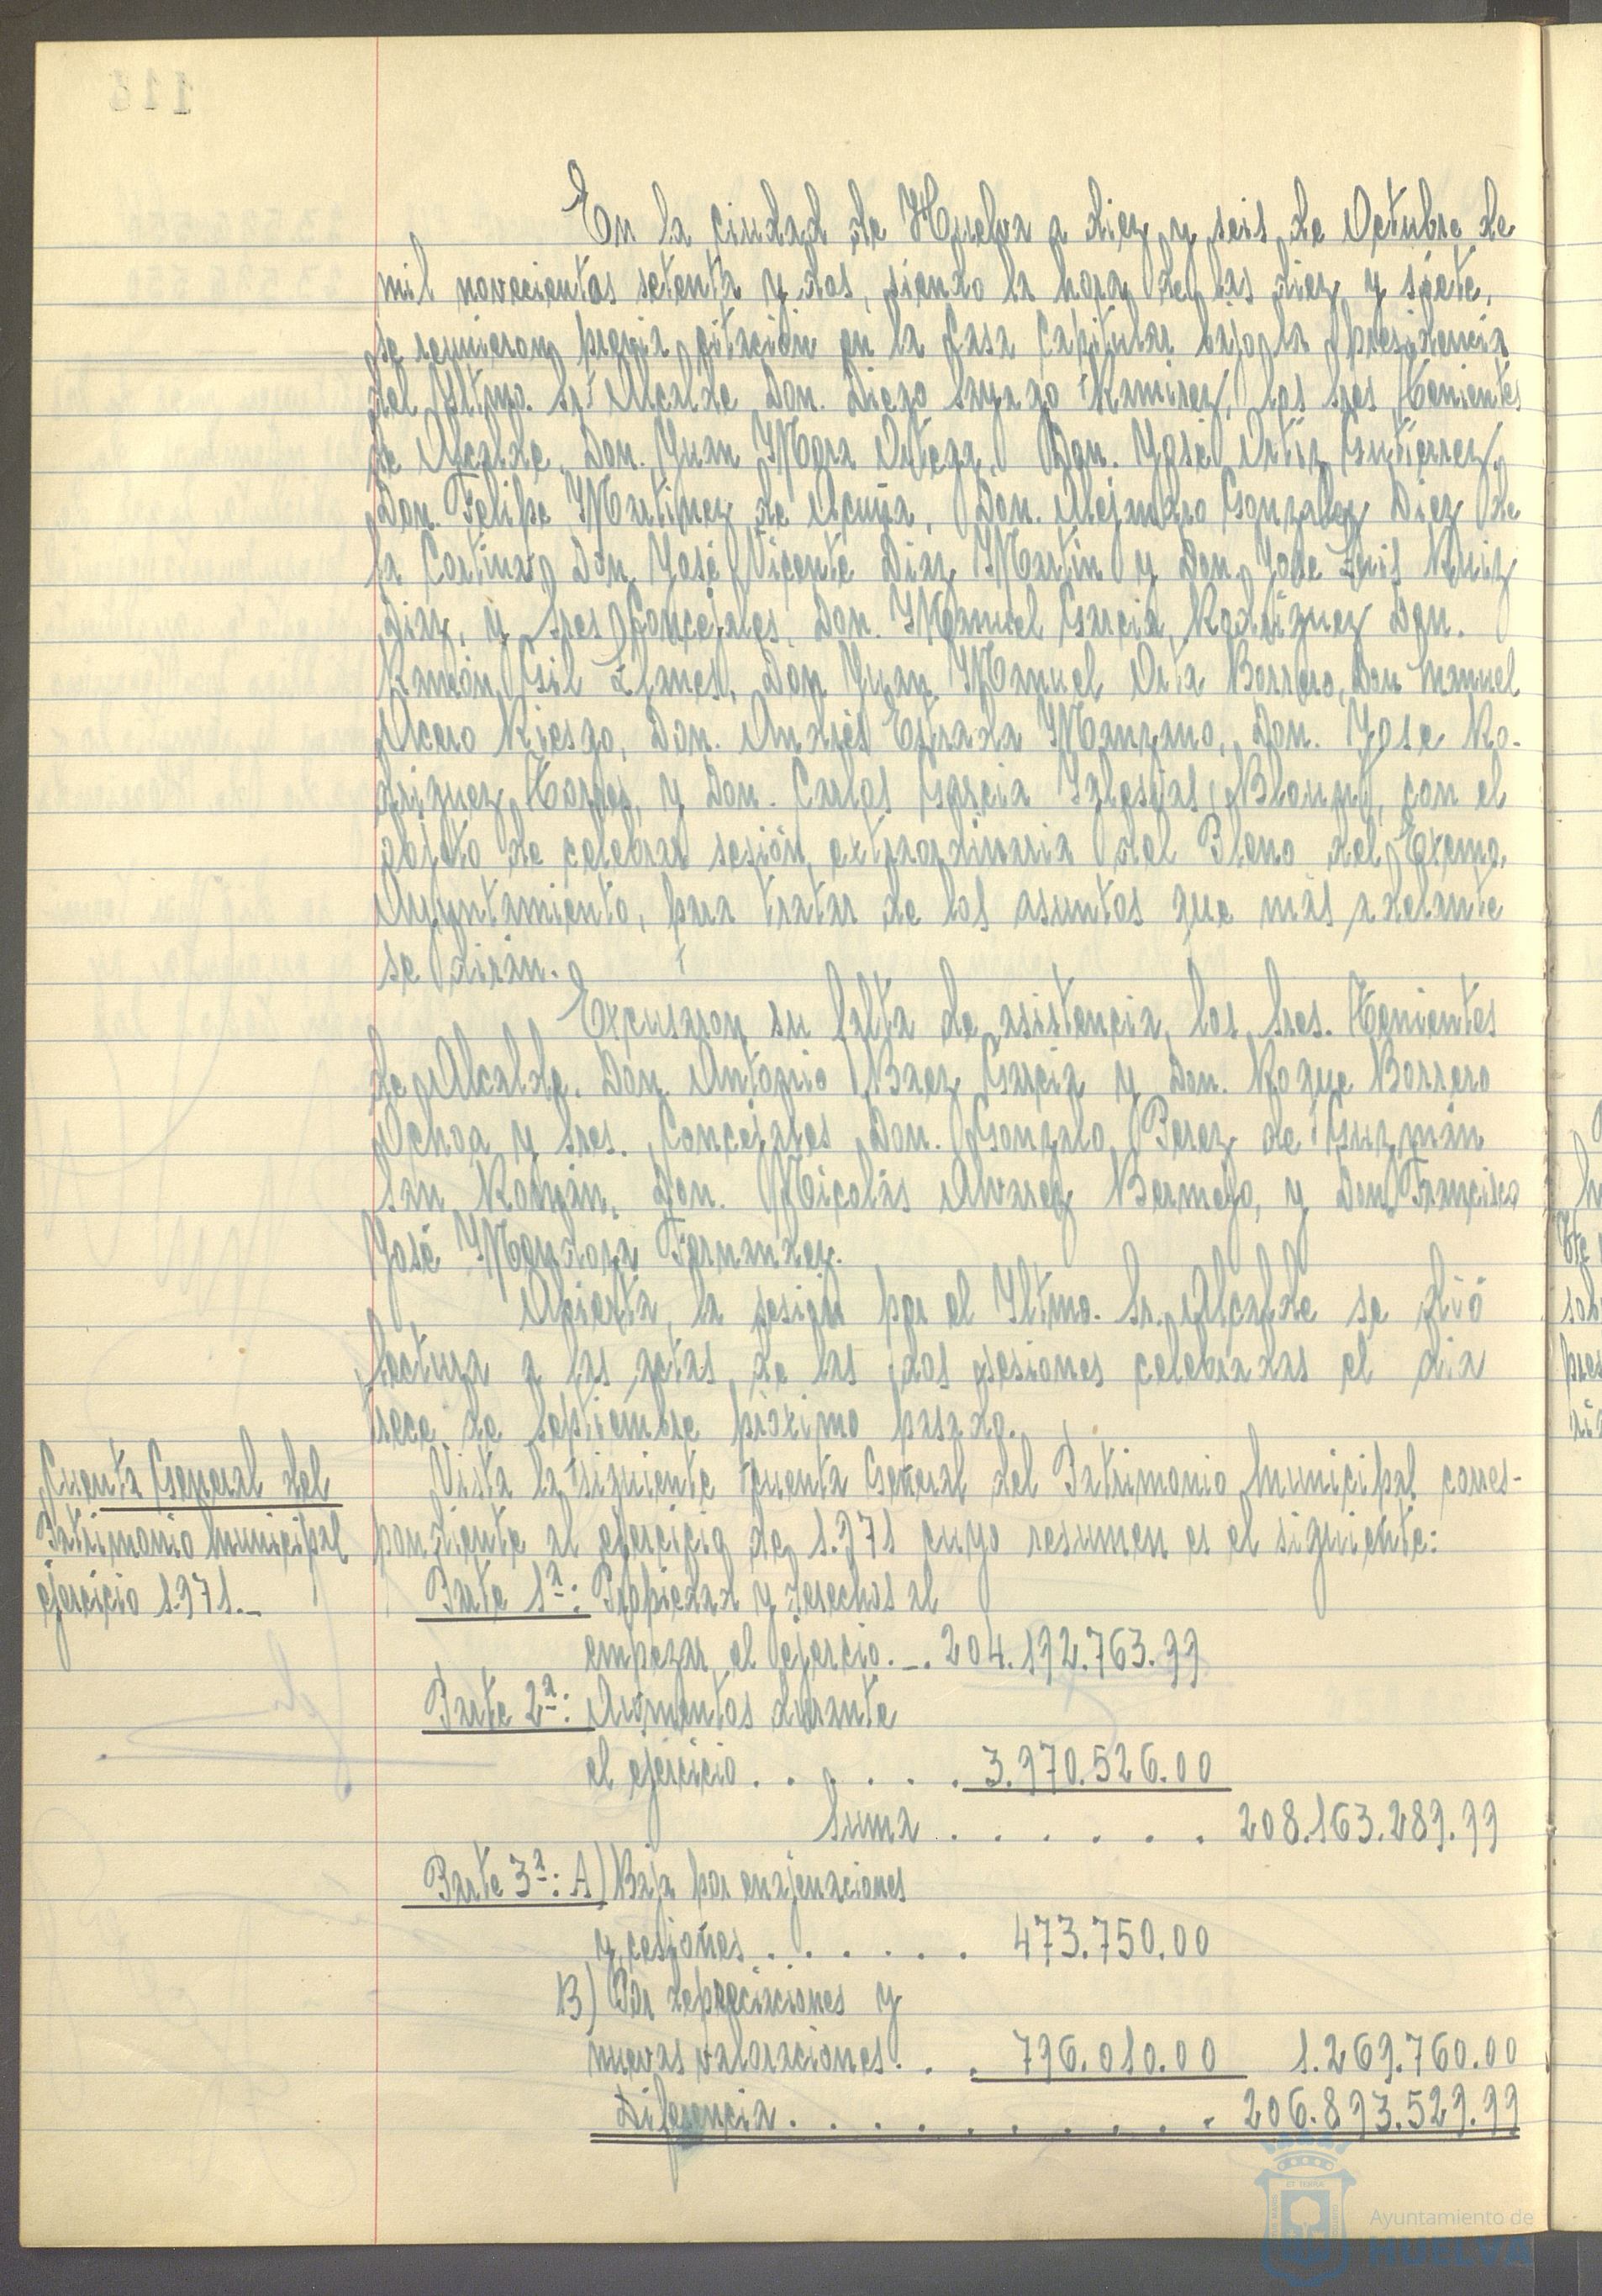 En la ciudad de Huelva a diez y seis de Octubre de
mil novecientos setenta y dos, siendo la hora de las diez y siete,
se reunieron previa citación en la Casa Capitular bajo la presidencia
del Iltmo. Sr. Alcalde Don. Diego Sayago Ramirez, los Sres Tenientes
de Alcalde, Don. Juan Mora Ortega, Don. José Ortiz Gutierrez,
Don. Felipe Martinez de Acuña, Don. Alejandro Gonzalez Diez de
la Cortina, Don José Vicente Diaz Martin y Don Jose Luis Ruiz
Diaz, y Sres Concejales, Don. Manuel Garcia Rodriguez Don.
Ramón Gil Llanes, Don Juan Manuel Orta Borrero, Don Manuel
Acero Riesgo, Don. Andrés Estrada Manzano, Don. Jose Ro-
driguez Torres, y Don. Carlos Garcia Iglesias, con el
objeto de celebrar sesión extraordinaria del Pleno del Excmo.
Ayuntamiento, para tratar de los asuntos que más adelante
se dirán.
Excusaron su falta de asistencia, los Sres. Tenientes
de Alcalde, Don Antonio Baez Garcia y Don. Roque Borrero
Ochoa y Sres. Concejales Don. Gonzalo Perez de Guzmán
San Román, Don. Nicolás Alvarez Bermejo, y Don Francisco
José Mendoza Fernandez.
Abierta la sesión por el Iltmo. Sr. Alcalde se dió
lectura a las actas de las dos sesiones celebradas el dia
trece de Septiembre próximo pasado.
Cuenta General del
Patrimonio Municipal
ejercicio 1.971.-
Vista la siguiente Cuenta General del Patrimonio Municipal corres-
pondiente al ejercicio de 1.971 cuyo resumen es el siguiente:
Parte 1ª: Propiedad y derechos al
empezar el ejercio.-. 204.192.763.99
Parte 2ª: Aumentos durante
el ejercicio . . . . . . 3.970.526.00
Suma . . . . . . 208.163.289.99
Parte 3ª: A) Baja por enajenaciones
y cesiones . . . . . . 473.750.00
B) Por depreciaciones y
nuevas valoraciones . . . 796.010.00 1.269.760.00
Diferencia . . . . . . . . . 206.893.529.99
Ayuntamiento de
HUELVA